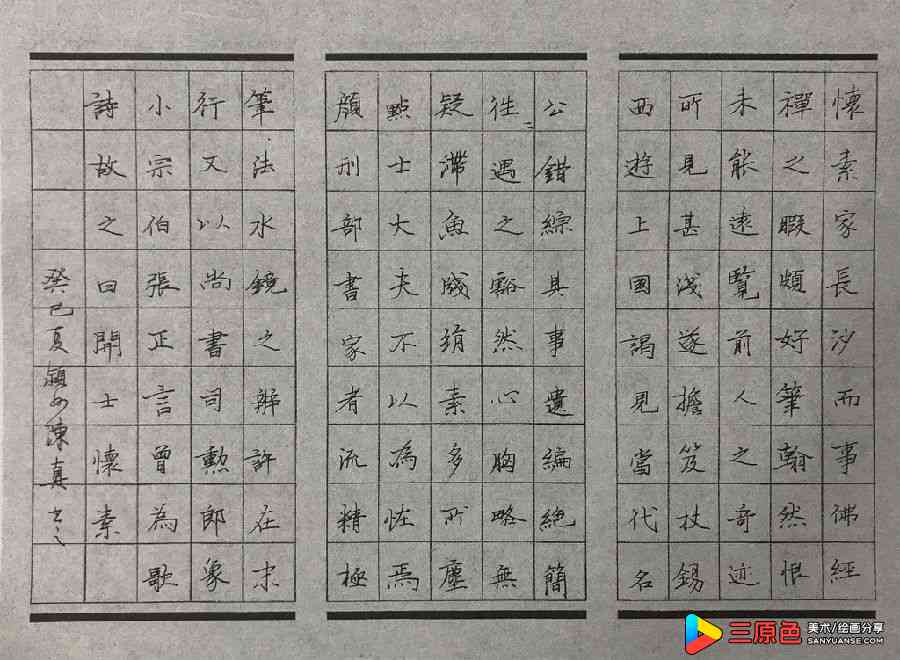 懷素家長沙而事佛經
禪之暇頗好筆翰然恨
未能遠覽前人之奇迹
所見甚浅遂擔笈杖錫
西遊上國謁見當代名
公錯綜其事遺編絶簡
往遇之豁然心胸略無
疑滯魚牋絹素多所塵
點士大夫不以為恠焉
顔刑部書家者流精極
筆法水鏡之辨許在末
行又以尚書司勲郎象
小宗伯張正言曾為歌
詩故之曰開士懷素
癸巳夏潁州陳真书之
三原色
美术/绘画分享
SANYUANSE.COM